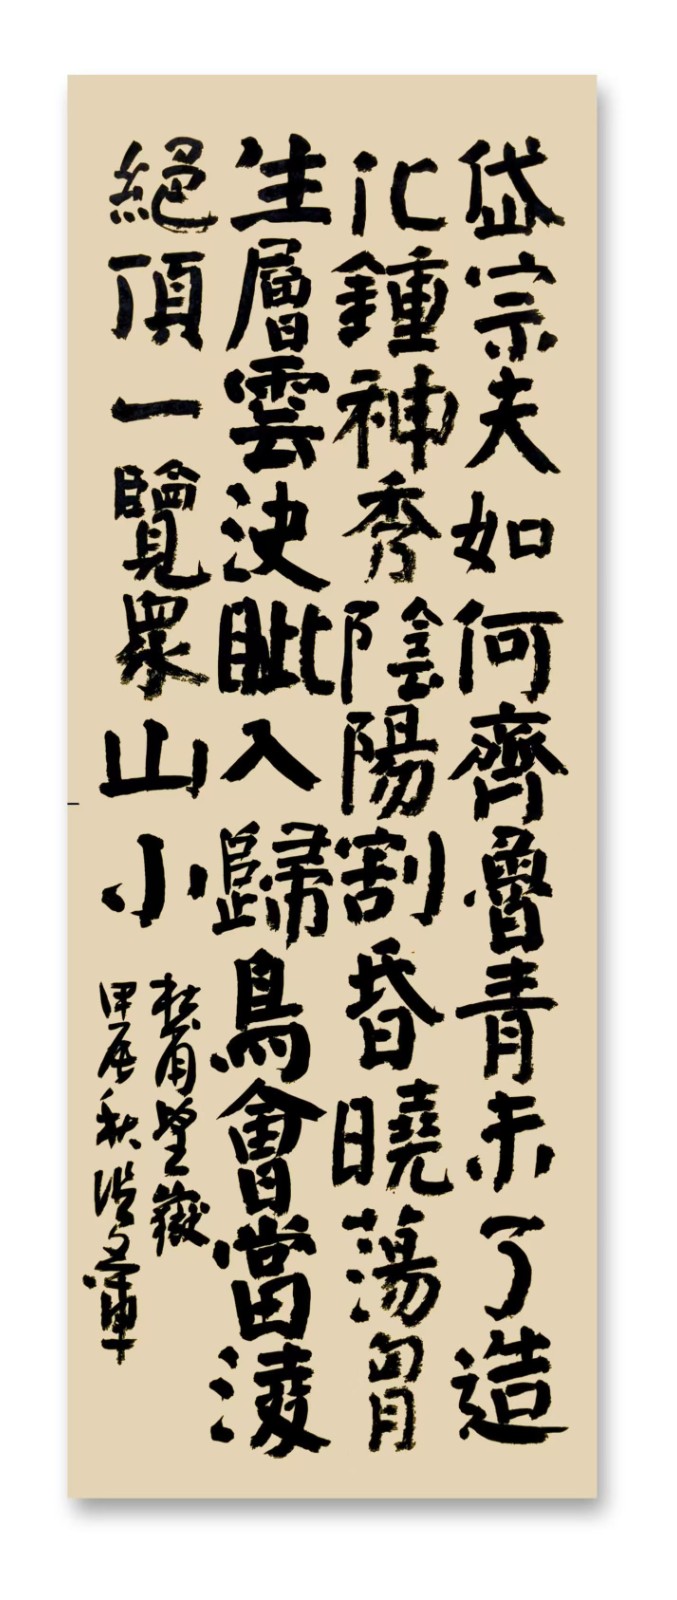 岱宗夫如何齊魯青未了造
化鍾神秀陰陽割昏曉蕩胷
生層雲決眦入歸鳥會當淩
絕頂一覽眾山小
杜甫望嶽
甲辰秋